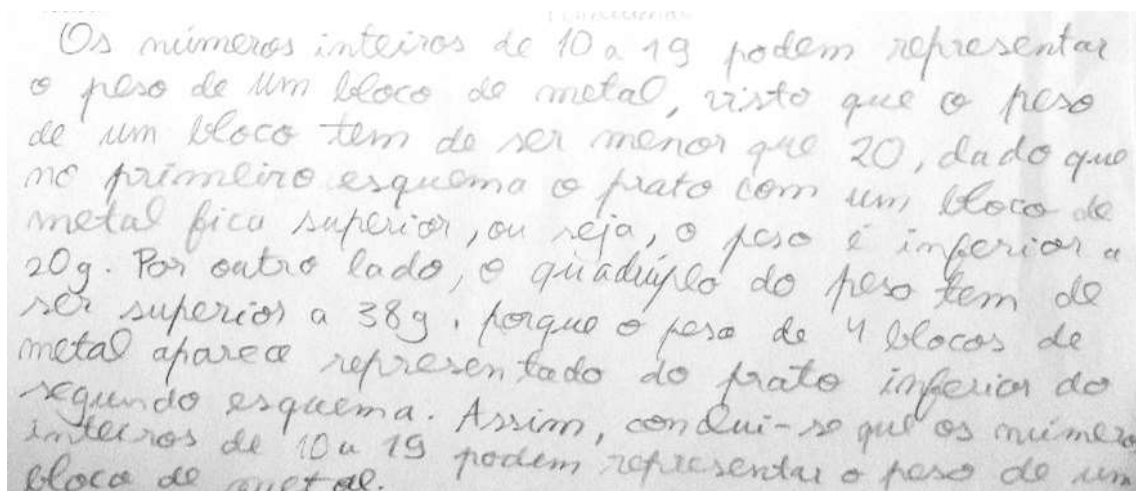 Os números inteiros de 10 a 19 podem representar
o peso de um bloco de metal, visto que o peso
de um bloco tem de ser menor que 20, dado que
no primeiro esquema o prato com um bloco de
metal fica superior, ou seja, o peso é inferior a
20g. Por outro lado, o quádruplo do peso tem de
ser superior a 38g, porque o peso de 4 blocos de
metal aparece representado do prato inferior do
segundo esquema. Assim, conclui-se que os número
inteiros de 10 a 19 podem representar o peso de um
bloco de metal.